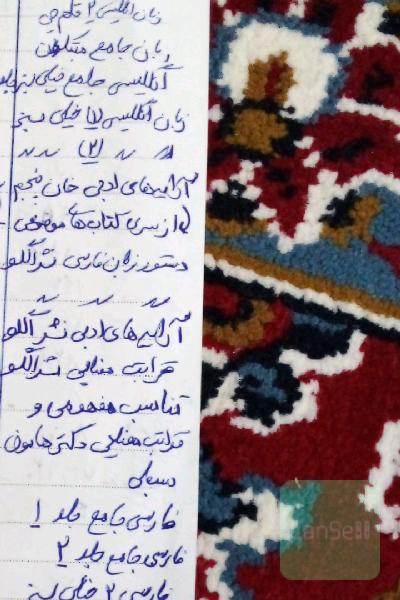 زبان انگلیسی ۲ قلم چی
زبان جامع مبتکران
انگلیسی جامع خیلی سبز جلد
زبان انگلیسی (۱) خیلی سبز
〃 〃 (۲) 〃 〃
آرایه‌های ادبی خان پنجم
(از سری کتاب‌های موضوعی
دستور زبان فارسی نشر الگو
〃 〃 〃
آرایه‌های ادبی نشر الگو
قرابت معنایی نشر الگو
تناسب مفهومی و
قرابت معنایی دکتر هامون
سبطی
فارسی جامع جلد ۱
فارسی جامع جلد ۲
فارسی ۲ خیلی سبز